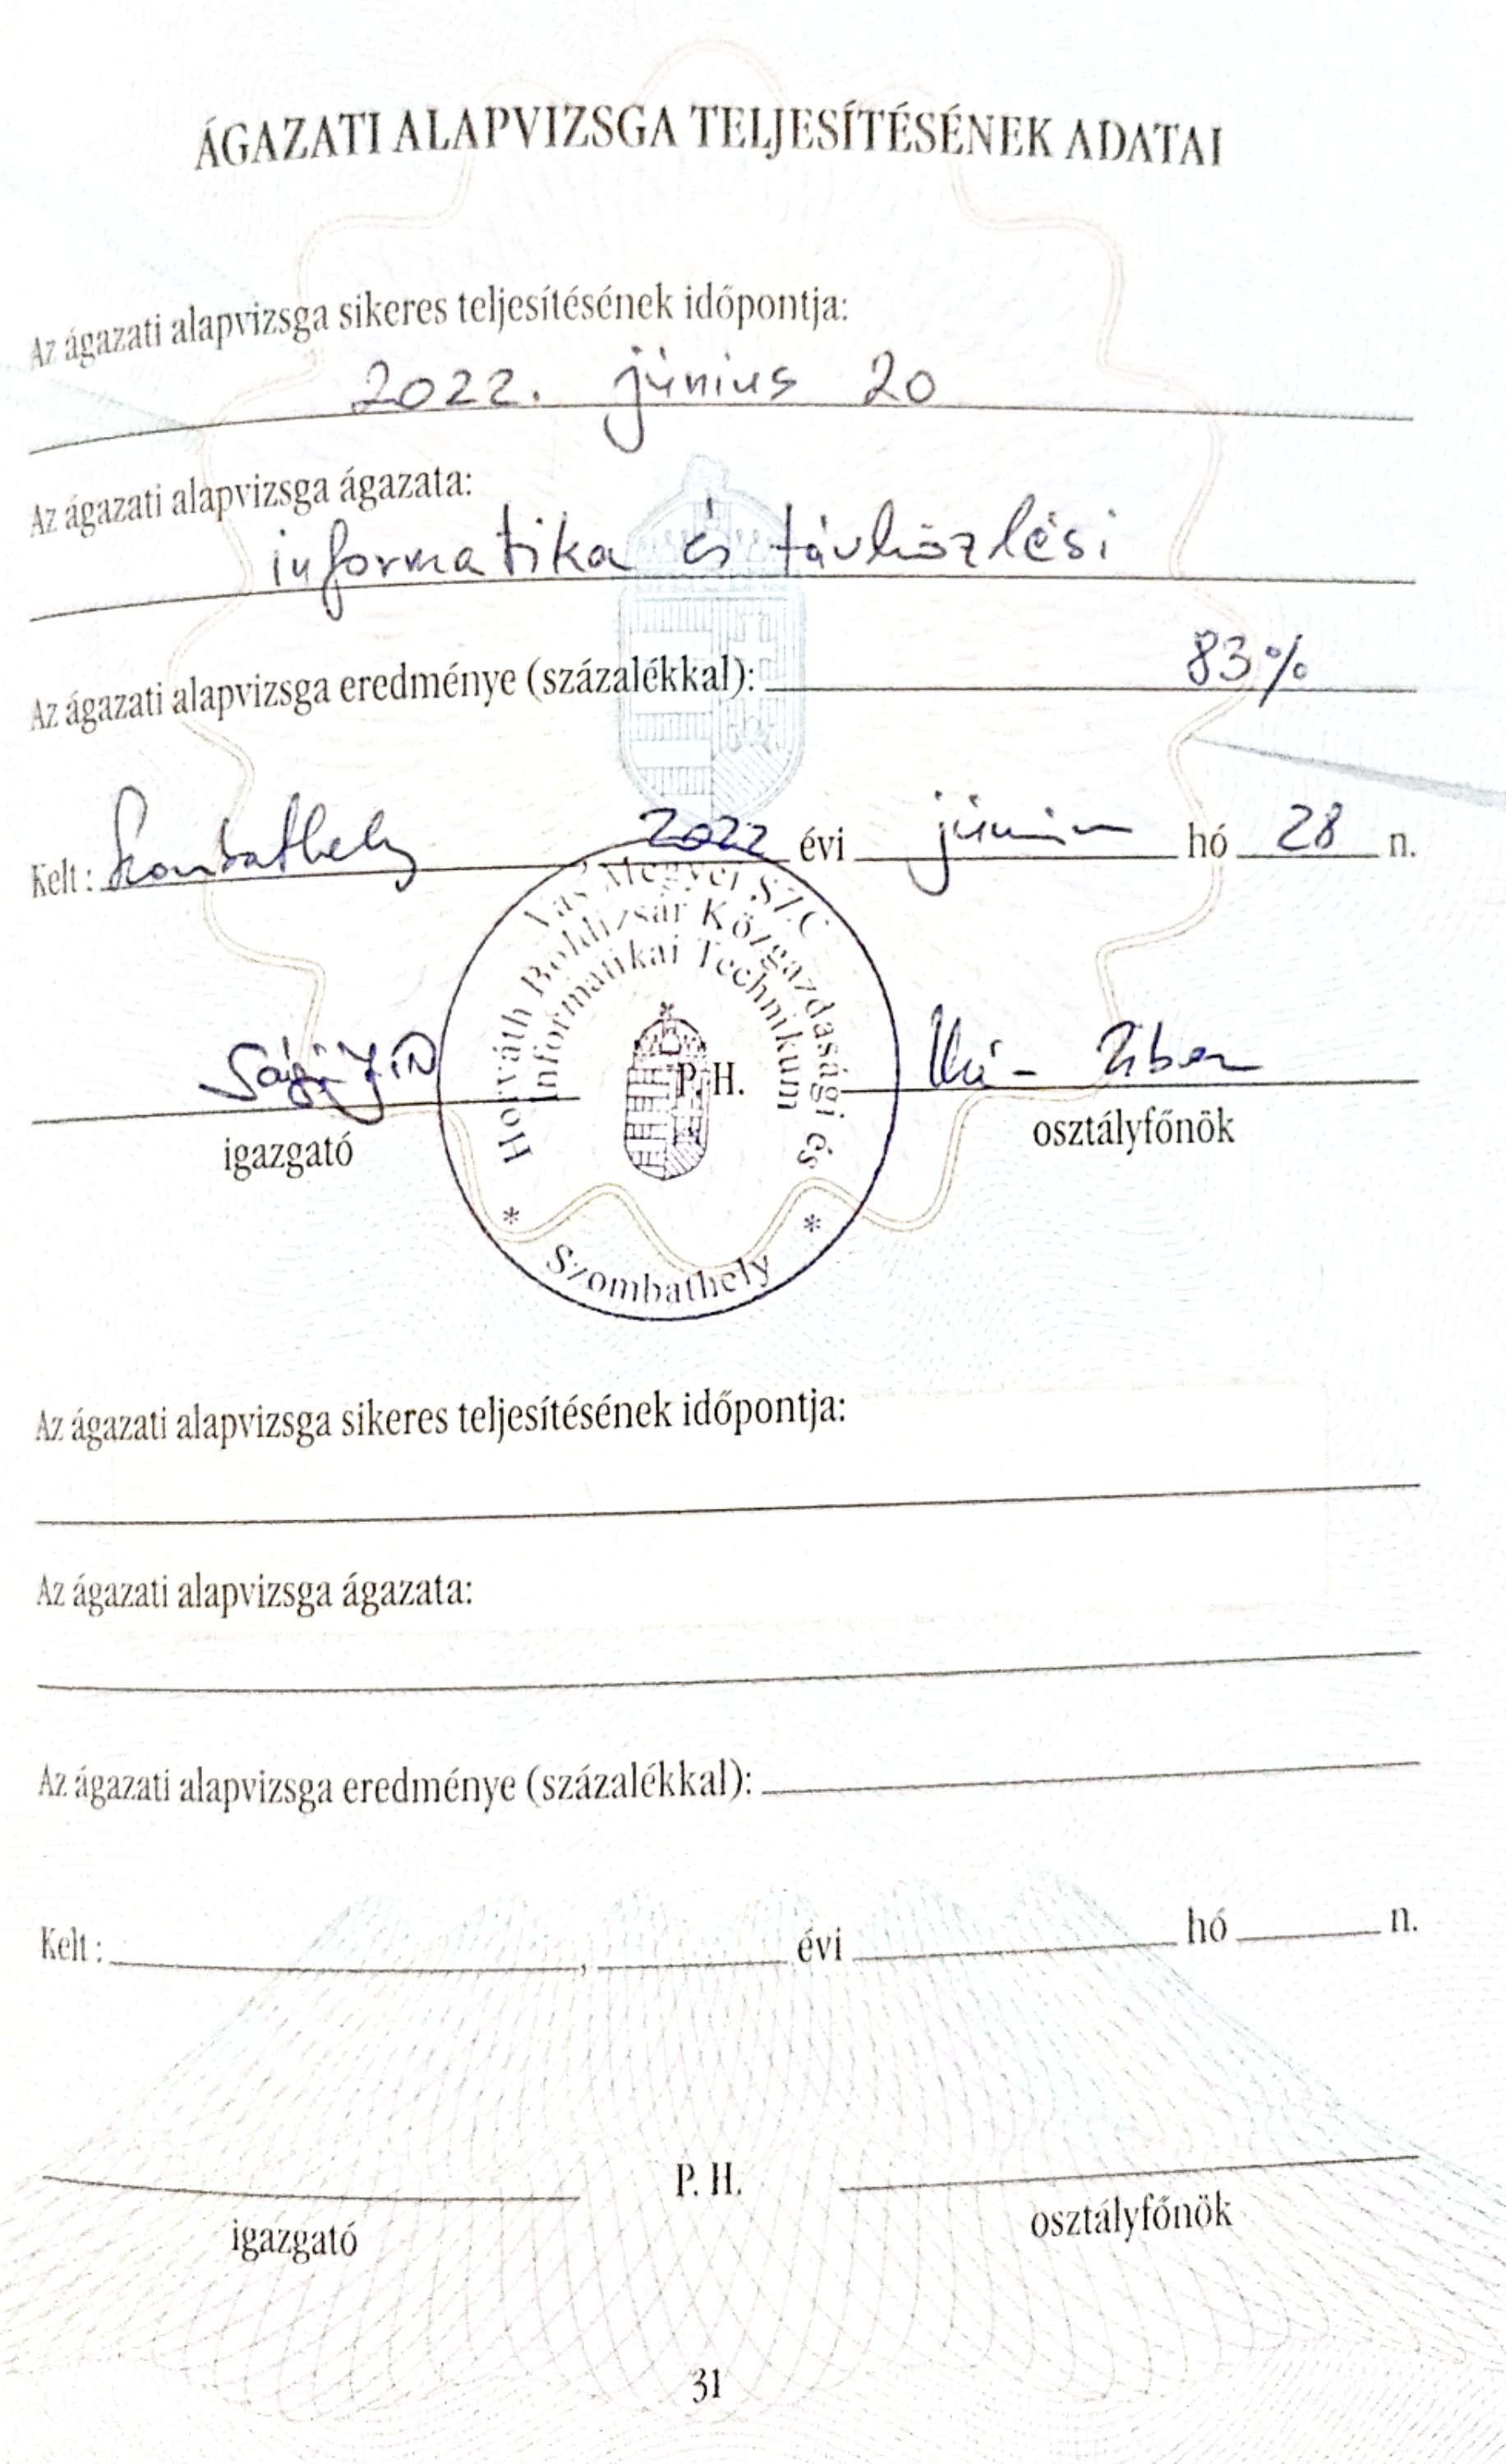 ÁGAZATI ALAPVIZSGA TELJESÍTÉSÉNEK ADATAI
Az ágazati alapvizsga sikeres teljesítésének időpontja:
2022. június 20
Az ágazati alapvizsga ágazata:
informatika és távközlési
Az ágazati alapvizsga eredménye (százalékkal): 83%
Kelt: Szombathely 2022 évi június hó 28 n.
Vas Megyei SZC
Horváth Boldizsár Közgazdasági és
Informatikai Technikum
* Szombathely *
P. H.
igazgató
osztályfőnök
Az ágazati alapvizsga sikeres teljesítésének időpontja:
Az ágazati alapvizsga ágazata:
Az ágazati alapvizsga eredménye (százalékkal):
Kelt: , évi hó n.
P. H.
igazgató
osztályfőnök
31